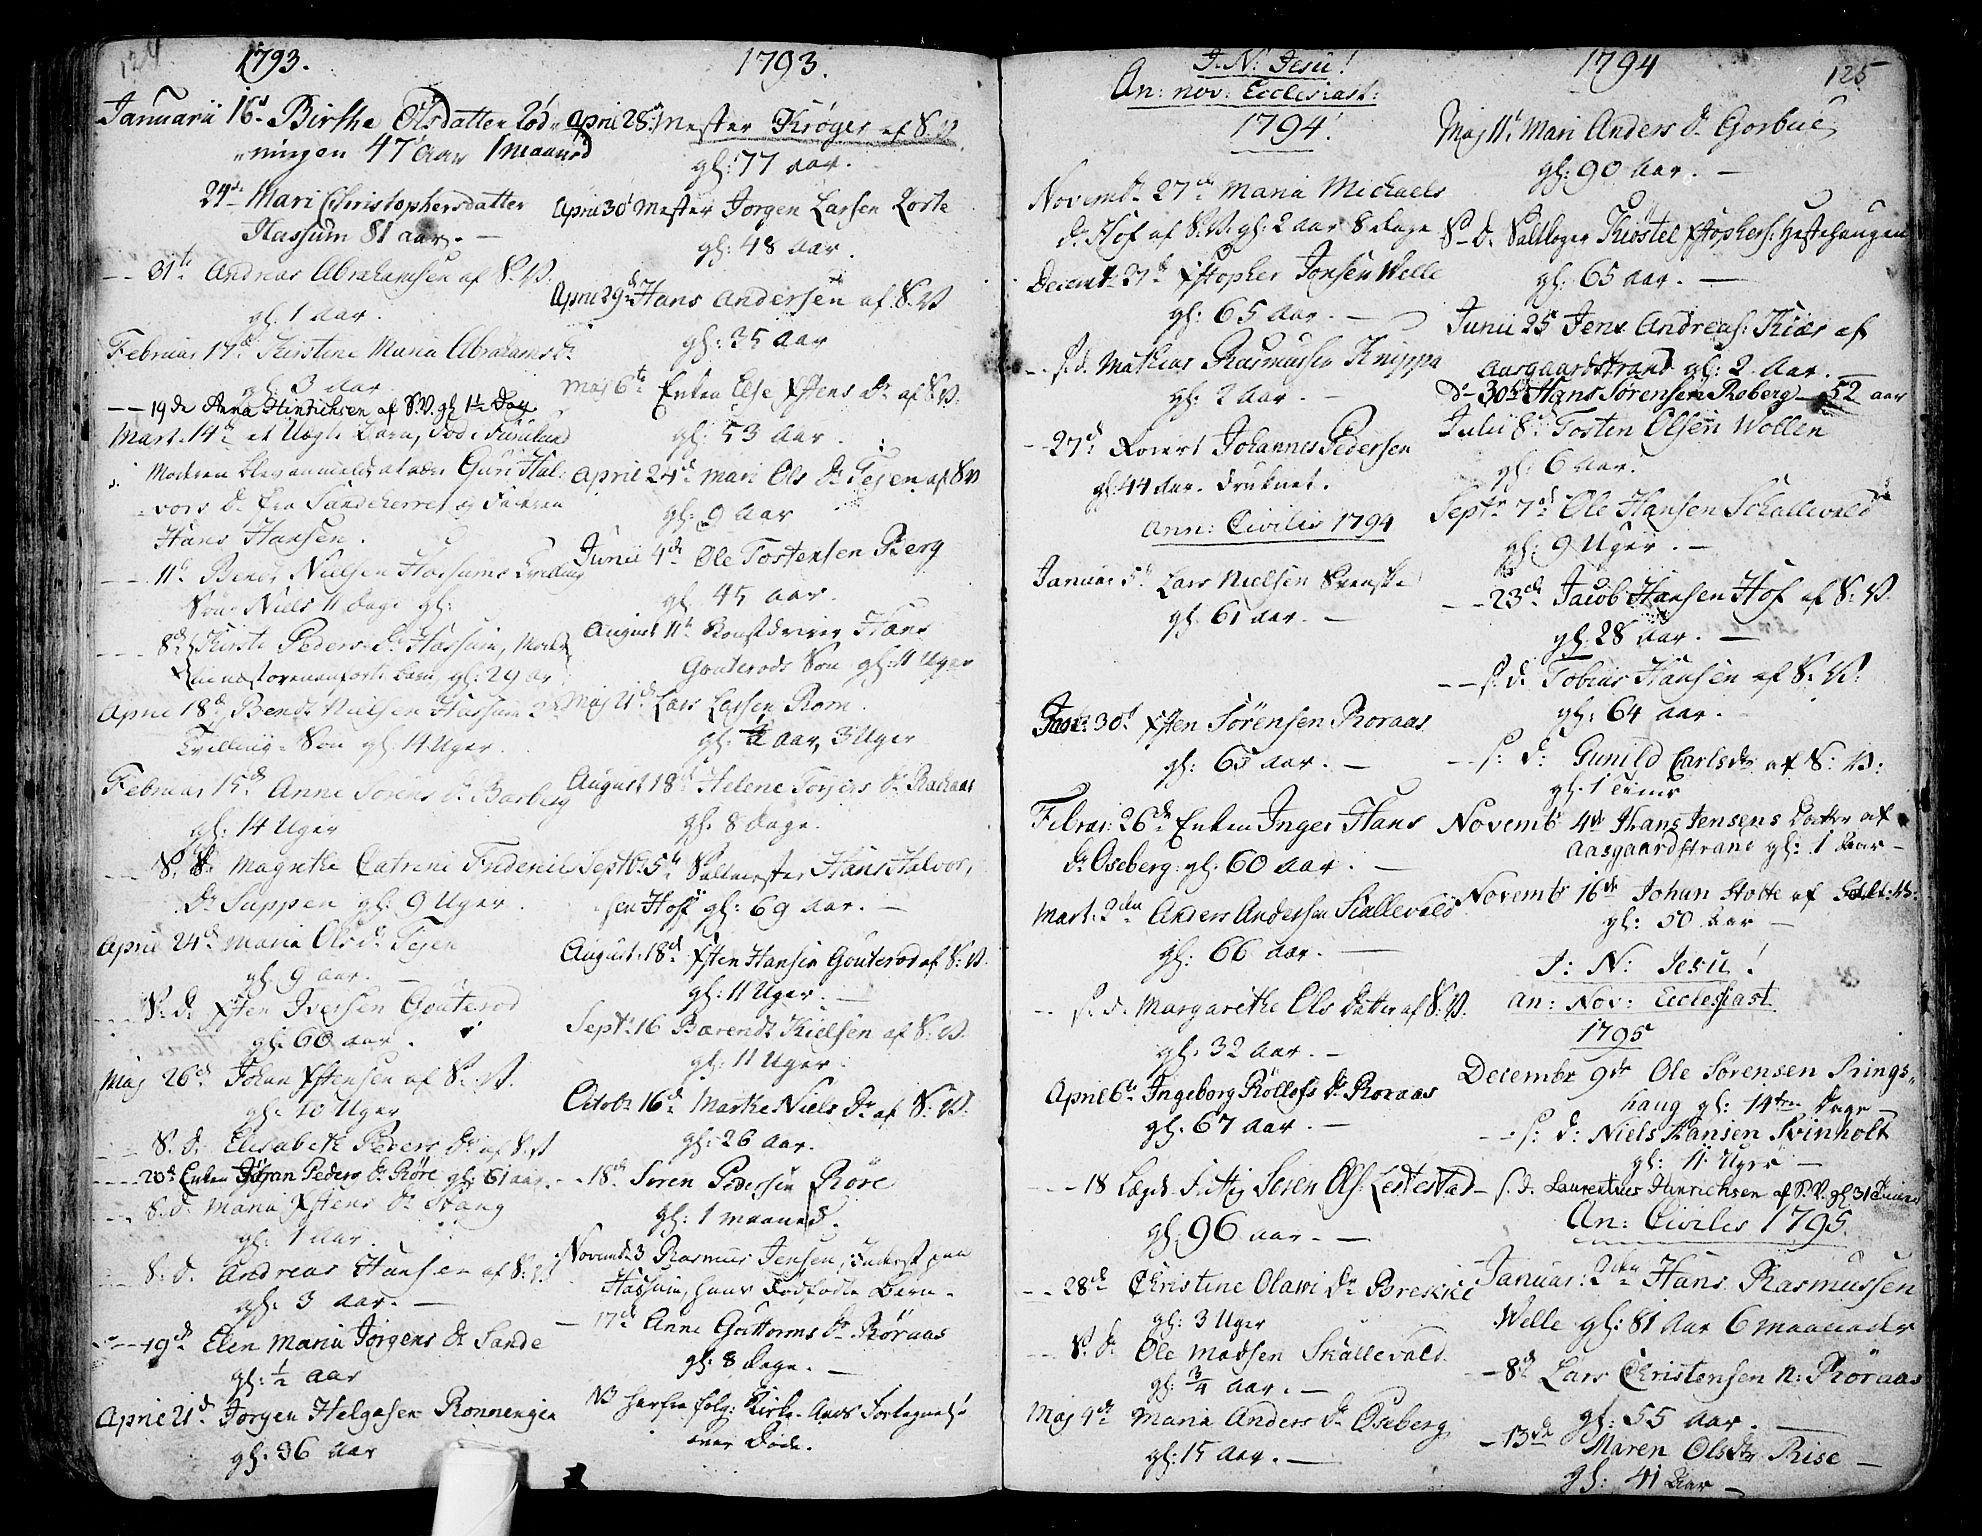 124
1793.
Januarii 16d Birthe Olsdatter Röd-
ningen 47 Aar 1 maaned
24de Mari Christophersdatter
Hassum 81 aar. -
31te Andreas Abrahamsen af S. V.
gl. 1 Aar.
Februar 17de Kirstine Maria Abrahams dr
gl. 3 aar.
19de Anna Hinrichsen af S.V. gl. 1½ Dag
Mart. 14de et Uægte Barn,
Moderen blev anmeldt at være Guri Hal-
vors dr fra Sandeherret og Faderen
Hans Hansen.
11te Bendt Nielsen Hassums Tvilling
Sön Niels 11 Dage gl:
8de Kirsti Peders dr Hassum,
gl: 29 ar
April 18de Bendt Nielsen Hassum
Tvilling-Sön gl. 14 Uger.
Februar 15de Anne Sorens dr Barberg
gl: 14 Uger
S. d. Magrethe Catrine Friderics
dr Suppen gl: 9 Uger
April 24de Maria Olsdr Tejen
gl: 9 aar. -
S. d. Xsten Iversen Gouterod
gl: 60 aar.
Maj 26de Johan Xstensen af S: V.
gl: 10 Uger
S. d. Elisabeth Peders dr af S: V
20de Enken Göran Peders dr Röre gl: 61 aar.
S. d. Maria Xstens dr Stang
gl: 1 Aar.
S. d. Andreas Hansen af S: V.
gl: 3 aar. -
19de Elen Maria Jörgens dr Sande
gl: ½ aar
April 21de Jorgen Helgesen Ronningen
gl: 36 aar
1793.
April 28de Mester Kröger af S. V.
gl: 77 aar.
April 30te Mester Jorgen Larsen Lorte
gl: 48 aar.
April 29de Hans Andersen af S. V
gl: 35 aar
Maj 6te Enken Else Xstens dr af S. V.
gl: 53 aar.
April 24de Mari Ols dr Tejen af S V
gl: 9 Aar
Junii 4de Ole Tostensen Berg
gl. 45 aar.
August 11te Kunstdriver Hans
Gouterods Son gl: 11 Uger
Maj 21de Lars Larsen Rom.
gl: ½ aar, 3 Uger
August 18de Helene Torgers dr
gl: 8 dage.
Septbr 5te Saltmester Hans Halvor,
sen Hoff gl: 69 aar. -
August. 18de Xsten Hansen Gouterod af S: V.
gl: 11 Uger. -
Septbr 16 Barendt Kielsen af S: V.
gl: 11 Uger.
Octobr 16de Marthe Niels dr af S: V.
gl: 26 aar.
18de Sören Pedersen Röre
gl: 1 maaned.
Novembr 3 Rasmus Jensen, Inderst paa
Hassum, hans Dödfödte Barn.
17de Anne Guttorms dr Röraas
gl: 8 dage. -
NB herfra folg: Kirke-Aars Fortegnelse
over Döde.
I. N. Jesu!
An: nov: Ecclesiast:
1794.
Novembr 27de Maria Michaels
dr Hof af S. V. gl: 2 aar 8 dage
Decembr 27de Xstopher Jonsen Welle
gl: 65 Aar. -
S. d. Mathias Rasmussen Knippa
gl: 2 Aar. -
27de Johannes Pedersen
gl: 44 aar. druknet.
Ann: Civilis 1794
Januar 5te Lars Nielsen Svenske
gl. 61 aar. -
30te Xsten Sörensen Roraas
gl: 65 aar. -
Febrar: 26de Enken Inger Hans
dr Oseberg. gl: 60 aar. -
Mart: 2den Anders Andersen Scallevold
gl: 66 aar. -
S. d. Margarethe Ols Datter af S. V.
gl: 32 aar. -
April 6te Ingeborg Röllofs dr Roraas
gl: 67 aar. -
18 Soren Ols: Lestestad
gl: 96 aar. -
28de Christine Olavi dr Brekke
gl: 3 Uger
S. d. Ole Madsen Skallevold
gl: ¾ aar. -
Maj 9de Maria Anders dr Oseberg
gl: 15 Aar. -
1794
125
Maj 11te Mari Anders dr Gorbue,
gl: 90 Aar. -
S. d. Saltloger Kiostel Xstophers: Hestehaugen
gl: 65 aar. -
Junii 25 Jens Andreas: Kiær af
Aasgaardstrand gl: 2 Aar. -
d: 30te Hans Sörensen Roberg - 52 aar
Julii 8de Tosten Olsen Wollen
gl: 6 Aar.
Septr 7de Ole Hansen Schallevold
gl: 9 Uger. -
23de Jacob Hansen Hof af S: V.
gl: 28 aar. -
S. d. Tobias Hansen af S: V:
gl: 64 aar.
S: d: Gunild Carlsdr af S: V:
gl. 1 Time
Novembr 4de Hans Jensens Datter af
Aasgaardstrand gl: 1 Aar -
Novembr 16de Johan Holte af Salt: V:
gl: 50 Aar -
I: N: Jesu!
An: Nov: Ecclesiast.
1795
Decembr 9de Ole Sorensen Rings-
haug gl: 14ten Dage -
S: d: Niels Hansen Svinholt
gl: 11 Uger -
S. d. Laurentius Hinrichsen af S. V. gl 31 Timer
An: Civilis 1795.
Januar: 2den Hans Rasmussen
Welle gl: 81 Aar 6 maaneder
8de Lars Christensen n: Röraas
gl: 55 aar. -
13de Maren Olsdtr Rise -
gl: 41 Aar -